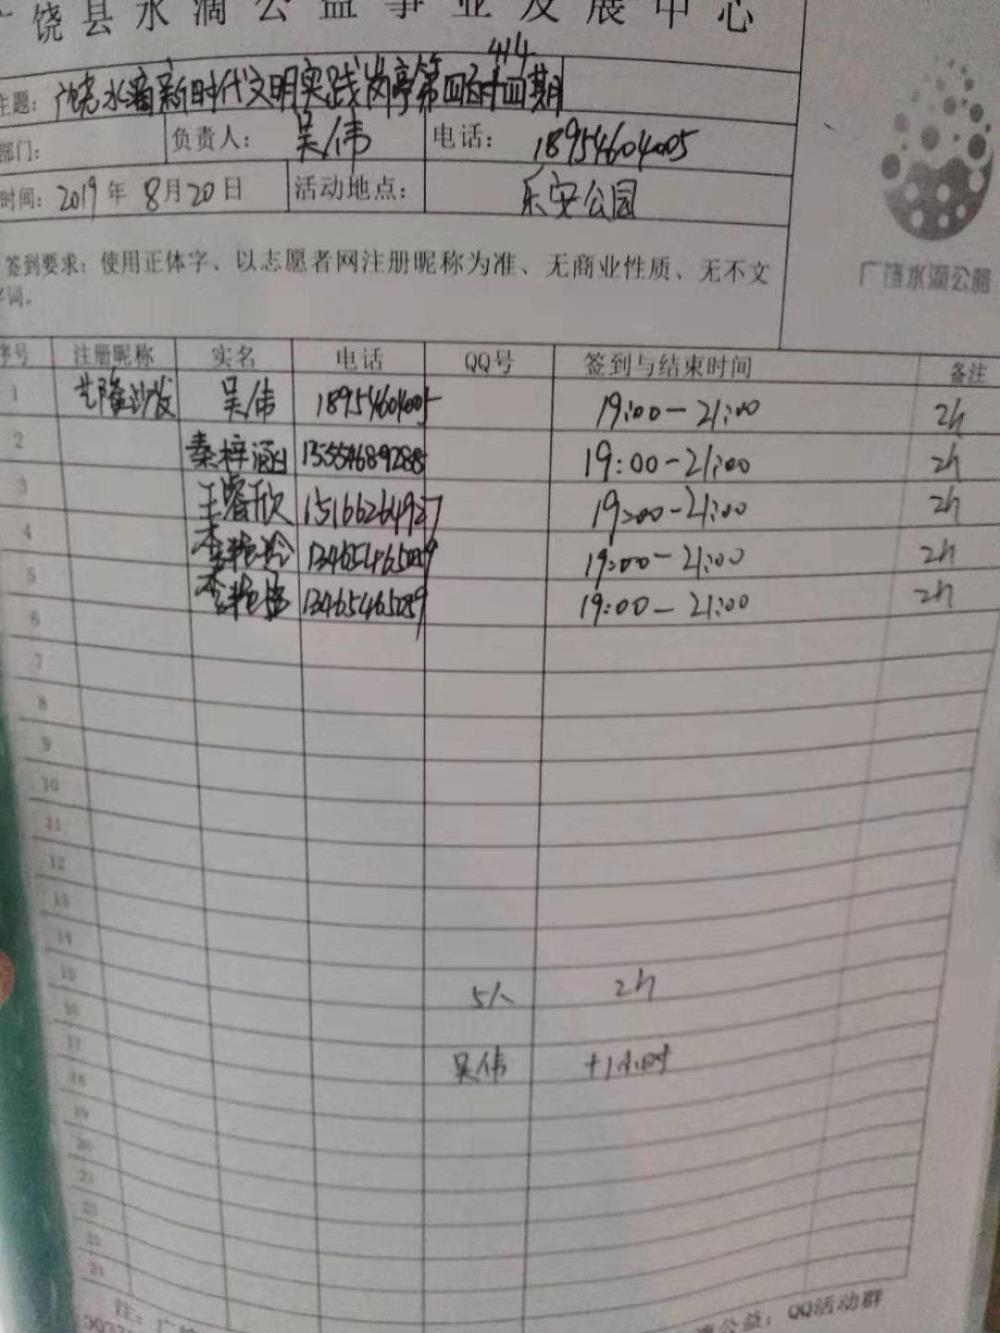 广饶县水滴公益事业发展中心
414
主题：广饶水滴新时代文明实践岗亭第四百十四期
部门： 负责人： 吴伟 电话： 18954604005
时间：2019年8月20日 活动地点： 乐安公园
签到要求：使用正体字、以志愿者网注册昵称为准、无商业性质、无不文
字词。
广饶水滴公益
序号 注册昵称 实名 电话 QQ号 签到与结束时间 备注
1 艺隆沙发 吴伟 18954604005 19:00-21:00 2h
2 秦梓涵 19:00-21:00 2h
3 王睿欣 15166264927 19:00-21:00 2h
4 李艳玲 13465465089 19:00-21:00 2h
5 李艳 13465465089 19:00-21:00 2h
6
7
8
9
10
11
12
13
14
15 5人 2h
16
17 吴伟 +1小时
18
19
20
21
22
23
24
注：广饶 滴公益：QQ活动群